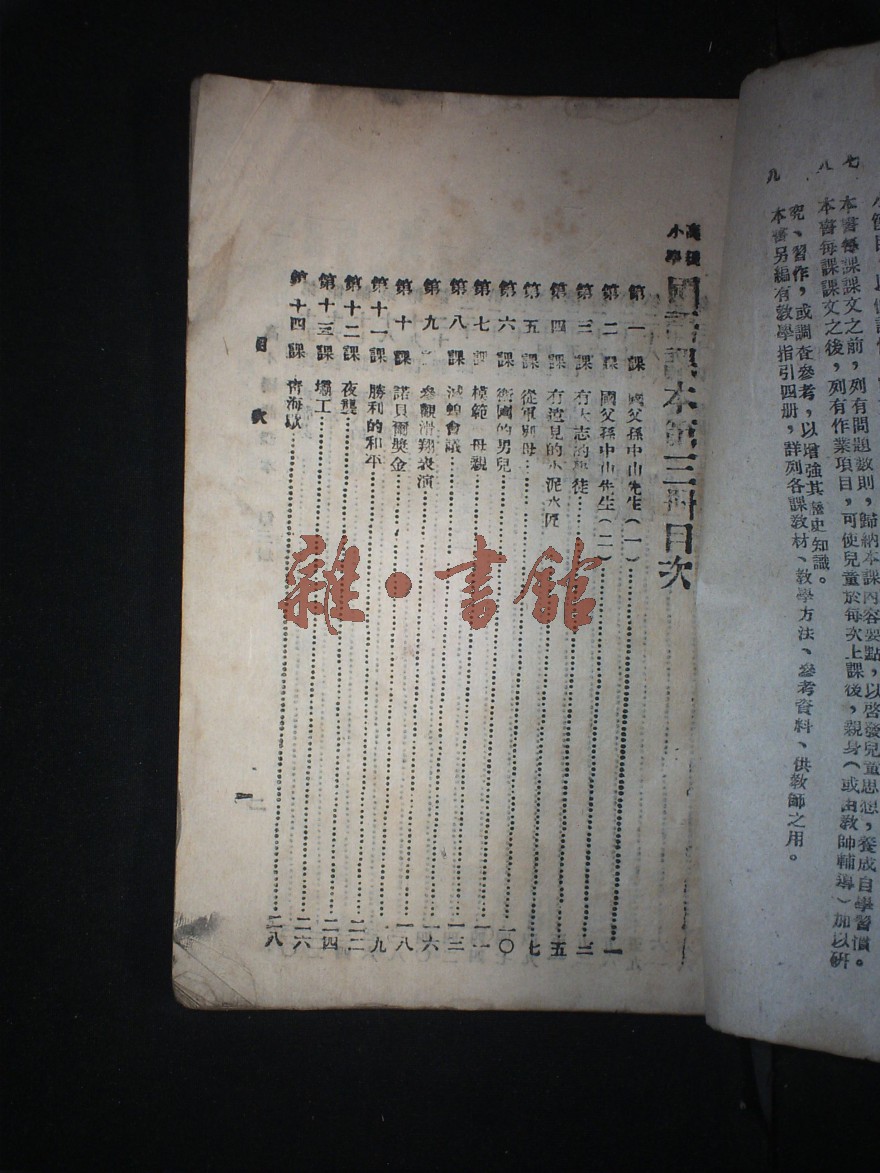 七 本書每課課文之前，列有問題數則，歸納本課內容要點，以啓發兒童思想，養成自學習慣。
八 本書每課課文之後，列有作業項目，可使兒童於每次上課後，親身（或由教師輔導）加以研
究、習作，或調查參考，以增強其歷史知識。
九 本書另編有教學指引四册，詳列各課教材、教學方法、參考資料、供教師之用。
高級小學 國語課本第三冊目次
第一課 國父孫中山先生（一）……一
第二課 國父孫中山先生（二）……三
第三課 有大志的學徒……五
第四課 有遠見的小泥水匠……七
第五課 從軍別母……一〇
第六課 衛國的男兒……一一
第七課 模範母親……一三
第八課 滅蝗會議……一六
第九課 參觀滑翔表演……一八
第十課 諾貝爾獎金……一九
第十一課 勝利的和平……二二
第十二課 夜襲……二四
第十三課 壩工……二六
第十四課 青海歌……二八
目次
一
雜·書館